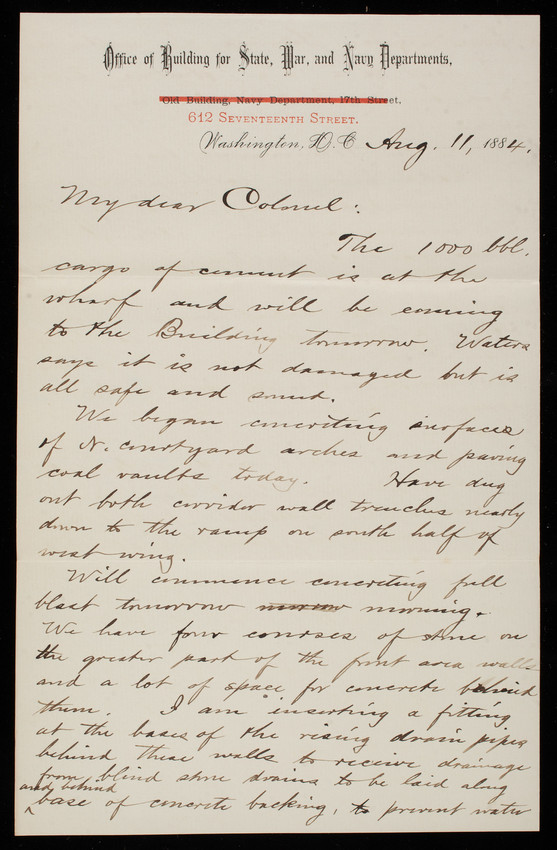 Office of Building for State, War, and Navy Departments,
Old Building, Navy Department, 17th Street,
612 Seventeenth Street.
Washington, D. C. Aug. 11, 1884.
My dear Colonel:
The 1000 bbl.
cargo of cement is at the
wharf and will be coming
to the Building tomorrow. Waters
says it is not damaged but is
all safe and sound.
We began concreting surfaces
of N. courtyard arches and paving
coal vaults today. Have dug
out both corridor wall trenches nearly
down to the ramp on south half of
west wing.
Will commence concreting full
blast tomorrow morning.
We have four courses of stone on
the greater part of the front area walls
and a lot of space for concrete behind
them. I am inserting a fitting
at the bases of the rising drain pipes
behind these walls to receive drainage
from blind stone drains to be laid along
and behind
base of concrete backing, to prevent water